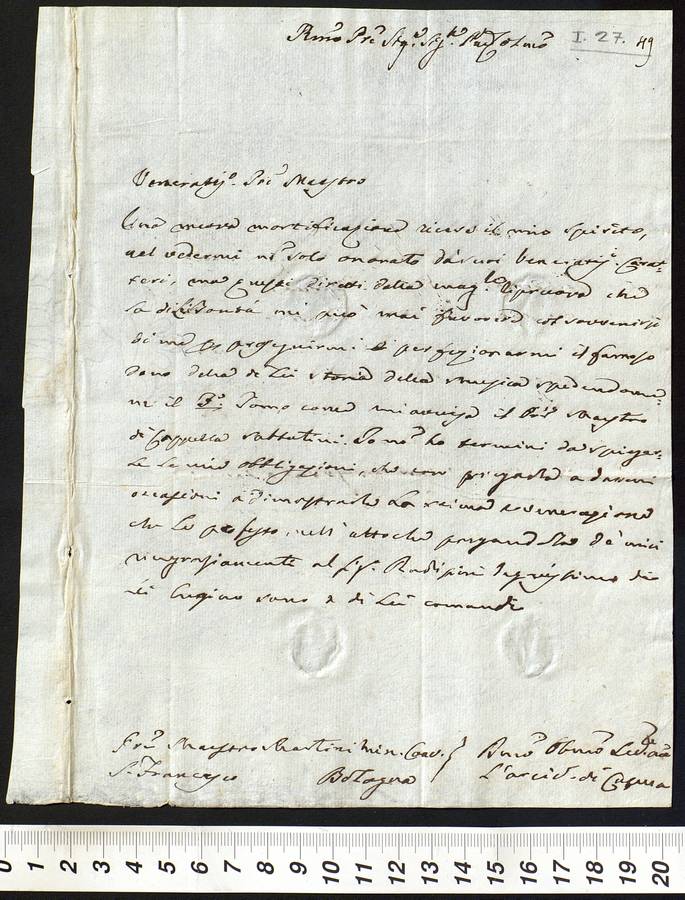 Rmo Pre Sigr. Sigr. Pne Colmo
I. 27. 49
Veneratiss.o Pre Maestro
Una nuova mortificazione riceve il mio spirito,
nel vedermi nō solo onorato da suoi veneratiss.i Carat-
teri, ma quasi diretti dalla
la di Lei Bontà mi può mai favorire col sovvenirsi
di me per proseguirmi e perfezionarmi il famoso
dono della di Lei storia della Musica spedendomi-
ne il 3.o Tomo come mi avvisa il Pre Maestro
di Cappella Sabbatini. Io nō ho termini da spiegar-
Le le mie obbligazioni, che con pregarla a darmi
occasioni a dimostrarle La stima e venerazione
che Le professo, nell'atto che pregandola de' miei
ringraziamenti al Sig. degnissimo di
Lei Cugino sono a di Lei comandi
Pre Maestro Martini Min. Conv.
S. Francesco Bologna
L'arcid. di
0 1 2 3 4 5 6 7 8 9 10 11 12 13 14 15 16 17 18 19 20